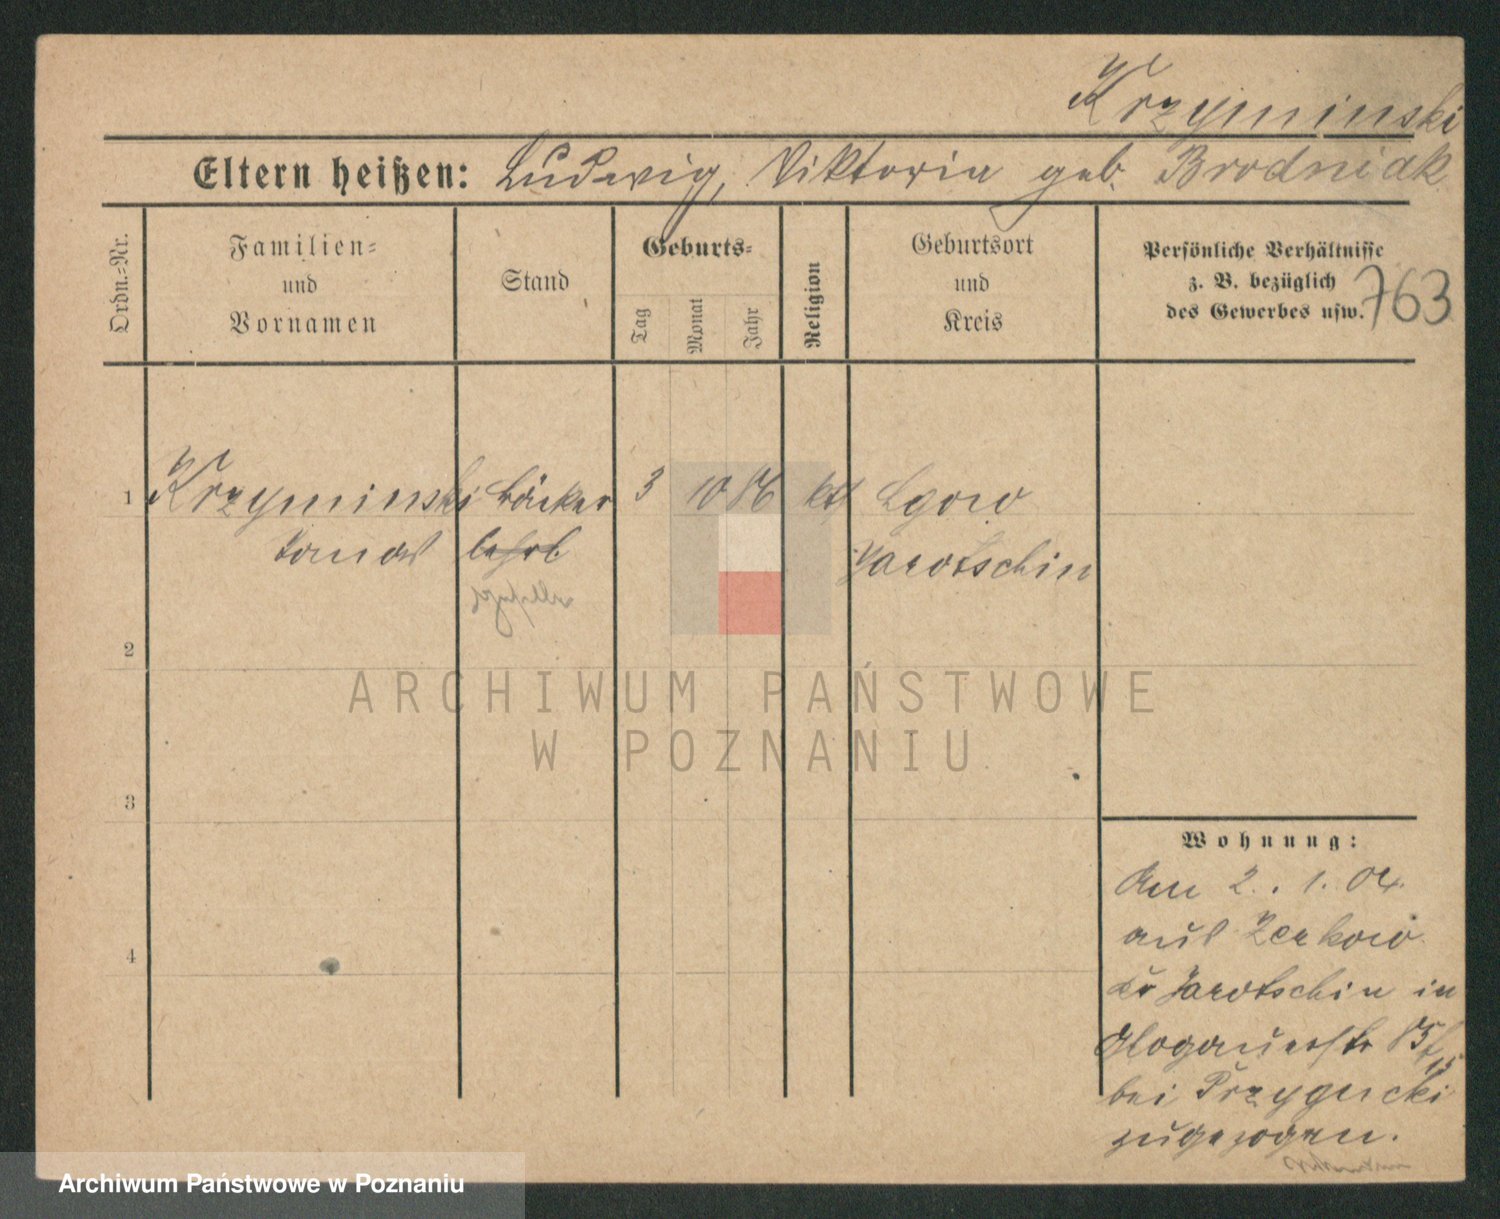 Krzyminski
Eltern heißen: Ludwig, Viktoria geb. Brodniak
Ordn.-Nr.
Familien-
und
Vornamen
Stand
Geburts-
Tag
Monat
Jahr
Religion
Geburtsort
und
Kreis
Persönliche Verhältnisse
z. B. bezüglich
des Gewerbes usw.
763
1 Krzyminski Bäcker 3 10 86 kth Lgow
Tomas lehrl Jarotschin
2
3
4
ARCHIWUM PAŃSTWOWE
W POZNANIU
Wohnung:
Am 2. 1. 04.
aus Zerkow
Kr Jarotschin in
Glogauerstr 85
bei Przygucki
zugezogen.
Archiwum Państwowe w Poznaniu